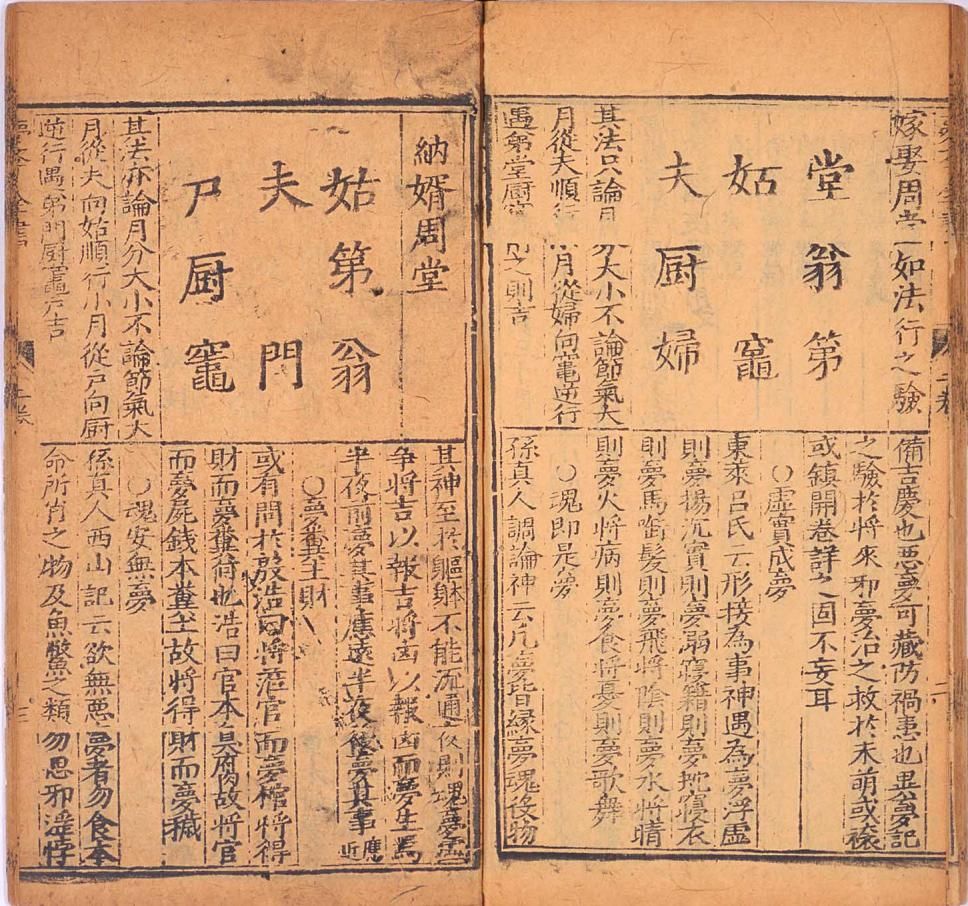 嫁娶周堂一如法行之驗
堂翁第
姑　竈
夫厨婦
其法只論月分大小不論節氣大
月從夫順行小月從婦向竈逆行
遇第堂厨竈用之則吉
備吉慶也惡夢可藏防禍患也異夢記
之驗於將來邪夢治之救於未萌或禳
或鎮開卷詳之固不妄耳
○虛實成夢
東萊呂氏云形接為事神遇為夢浮虛
則夢揚沉實則夢溺寢籍則夢蛇寢衣
則夢馬啣髮則夢飛將陰則夢水將晴
則夢火將病則夢食將憂則夢歌舞
○魂即是夢
孫真人調論神云凡夢皆緣夢魂役物
納婿周堂
姑第翁
夫　門
戸厨竈
其法亦論月分大小不論節氣大
月從夫向姑順行小月從戸向厨
逆行遇第門厨竈戸吉
其神至於軀躰不能流通夜則魂夢虛
争將吉以報吉將凶以報凶而夢生焉
半夜前夢其事應遠半夜後夢其事應近
○夢糞主財
或有問於殷浩曰將涖官而夢棺將得
財而夢糞何也浩曰官本臭腐故將官
而夢屍錢本糞土故將得財而夢穢
○魂安無夢
孫真人西山記云欲無惡夢者勿食本
命所肖之物及魚鱉之類勿思邪淫悖